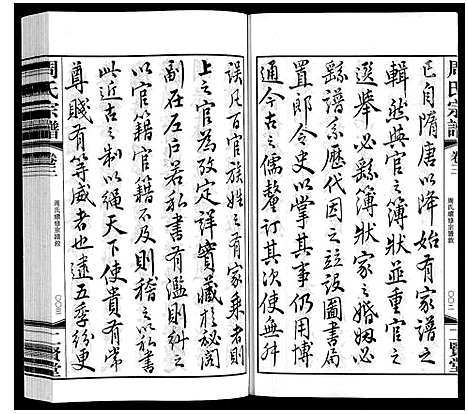 周氏宗譜
卷三
周氏續修宗譜敘
〇〇二
二賢堂
已自隋唐以降始有家譜之
輯然與官之簿狀並重官之
選舉必以簿狀家之婚姻必
繇譜系歷代因之並設圖書局
置郎令史以掌其事仍用博
通今古之儒釐訂其次今無舛
誤凡百官族姓之有家乘者則
上之官為攷定詳實藏於秘閣
副在左戶若私書有濫則糾之
以官籍官籍不及則稽之以私書
此近古之制以繩天下使貴有常
尊賤有等威者也逮五季紛更
周氏宗譜
卷三
周氏續修宗譜敘
〇〇三
二賢堂